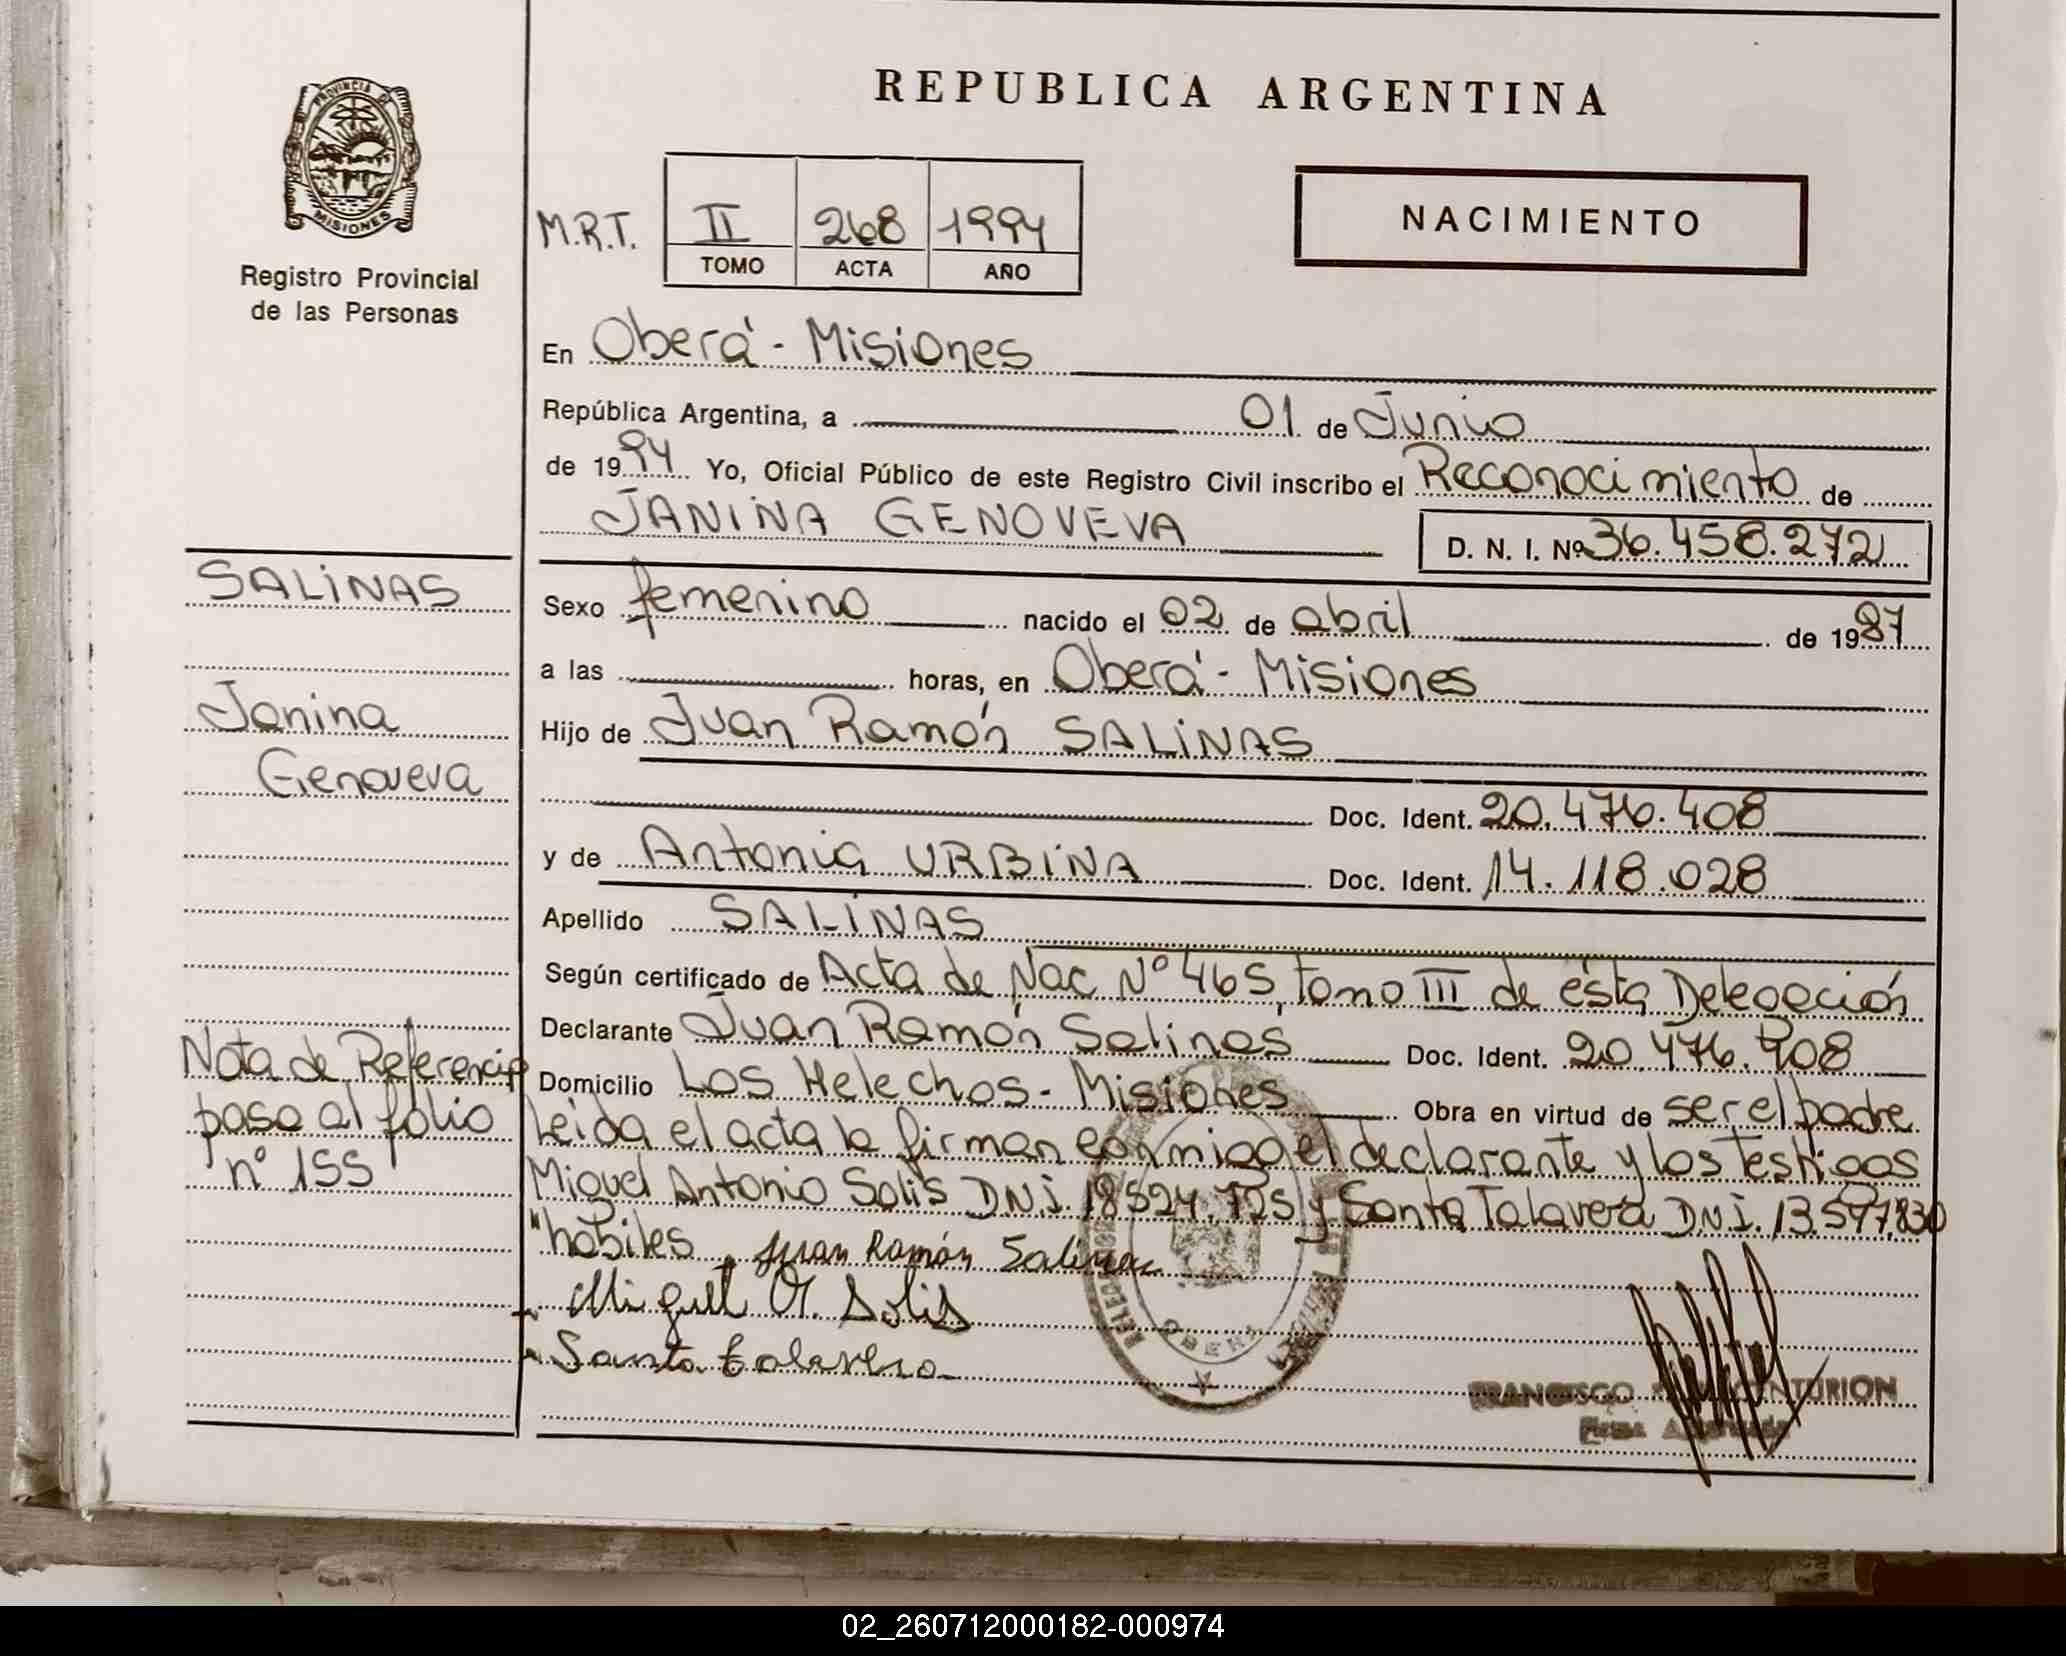 REPUBLICA ARGENTINA
PROVINCIA DE
MISIONES
Registro Provincial
de las Personas
M.R.T. II 268 1994
TOMO ACTA AÑO
NACIMIENTO
En Oberá - Misiones
República Argentina, a 01 de Junio
de 1994 Yo, Oficial Público de este Registro Civil inscribo el Reconocimiento de
JANINA GENOVEVA D. N. I. Nº 36.458.272
SALINAS
Janina
Genoveva
Sexo femenino nacido el 02 de abril de 1987
a las horas, en Oberá - Misiones
Hijo de Juan Ramón SALINAS
Doc. Ident. 20.476.408
y de Antonia URBINA Doc. Ident. 14.118.028
Apellido SALINAS
Según certificado de Acta de Nac Nº 465, tomo III de ésta Delegación
Declarante Juan Ramón Salinas Doc. Ident. 20.476.408
Domicilio Los Helechos - Misiones Obra en virtud de ser el padre
Leida el acta la firman conmigo el declarante y los testigos
Miguel Antonio Solis D.N.I. 18524.725 y Santa Talavera D.N.I. 13.597.830
"hábiles Juan Ramón Salinas
Miguel A. Solis
Santa talavera
Nota de Referencia
pasa al folio
nº 155
OBERA
FRANCISCO CENTURION
Firma
02_260712000182-000974